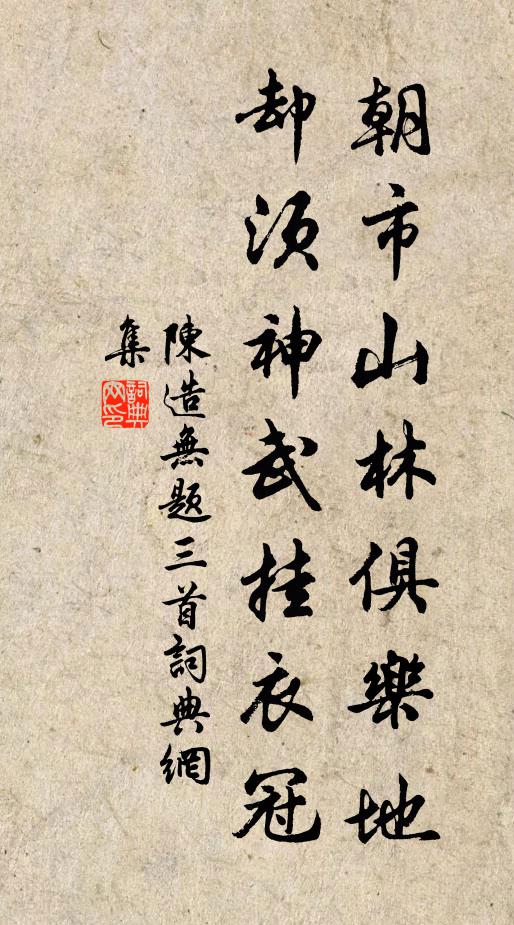 朝市山林俱樂地
却須神武挂衣冠
陳造無題三首詞典網
集
詞典
网印